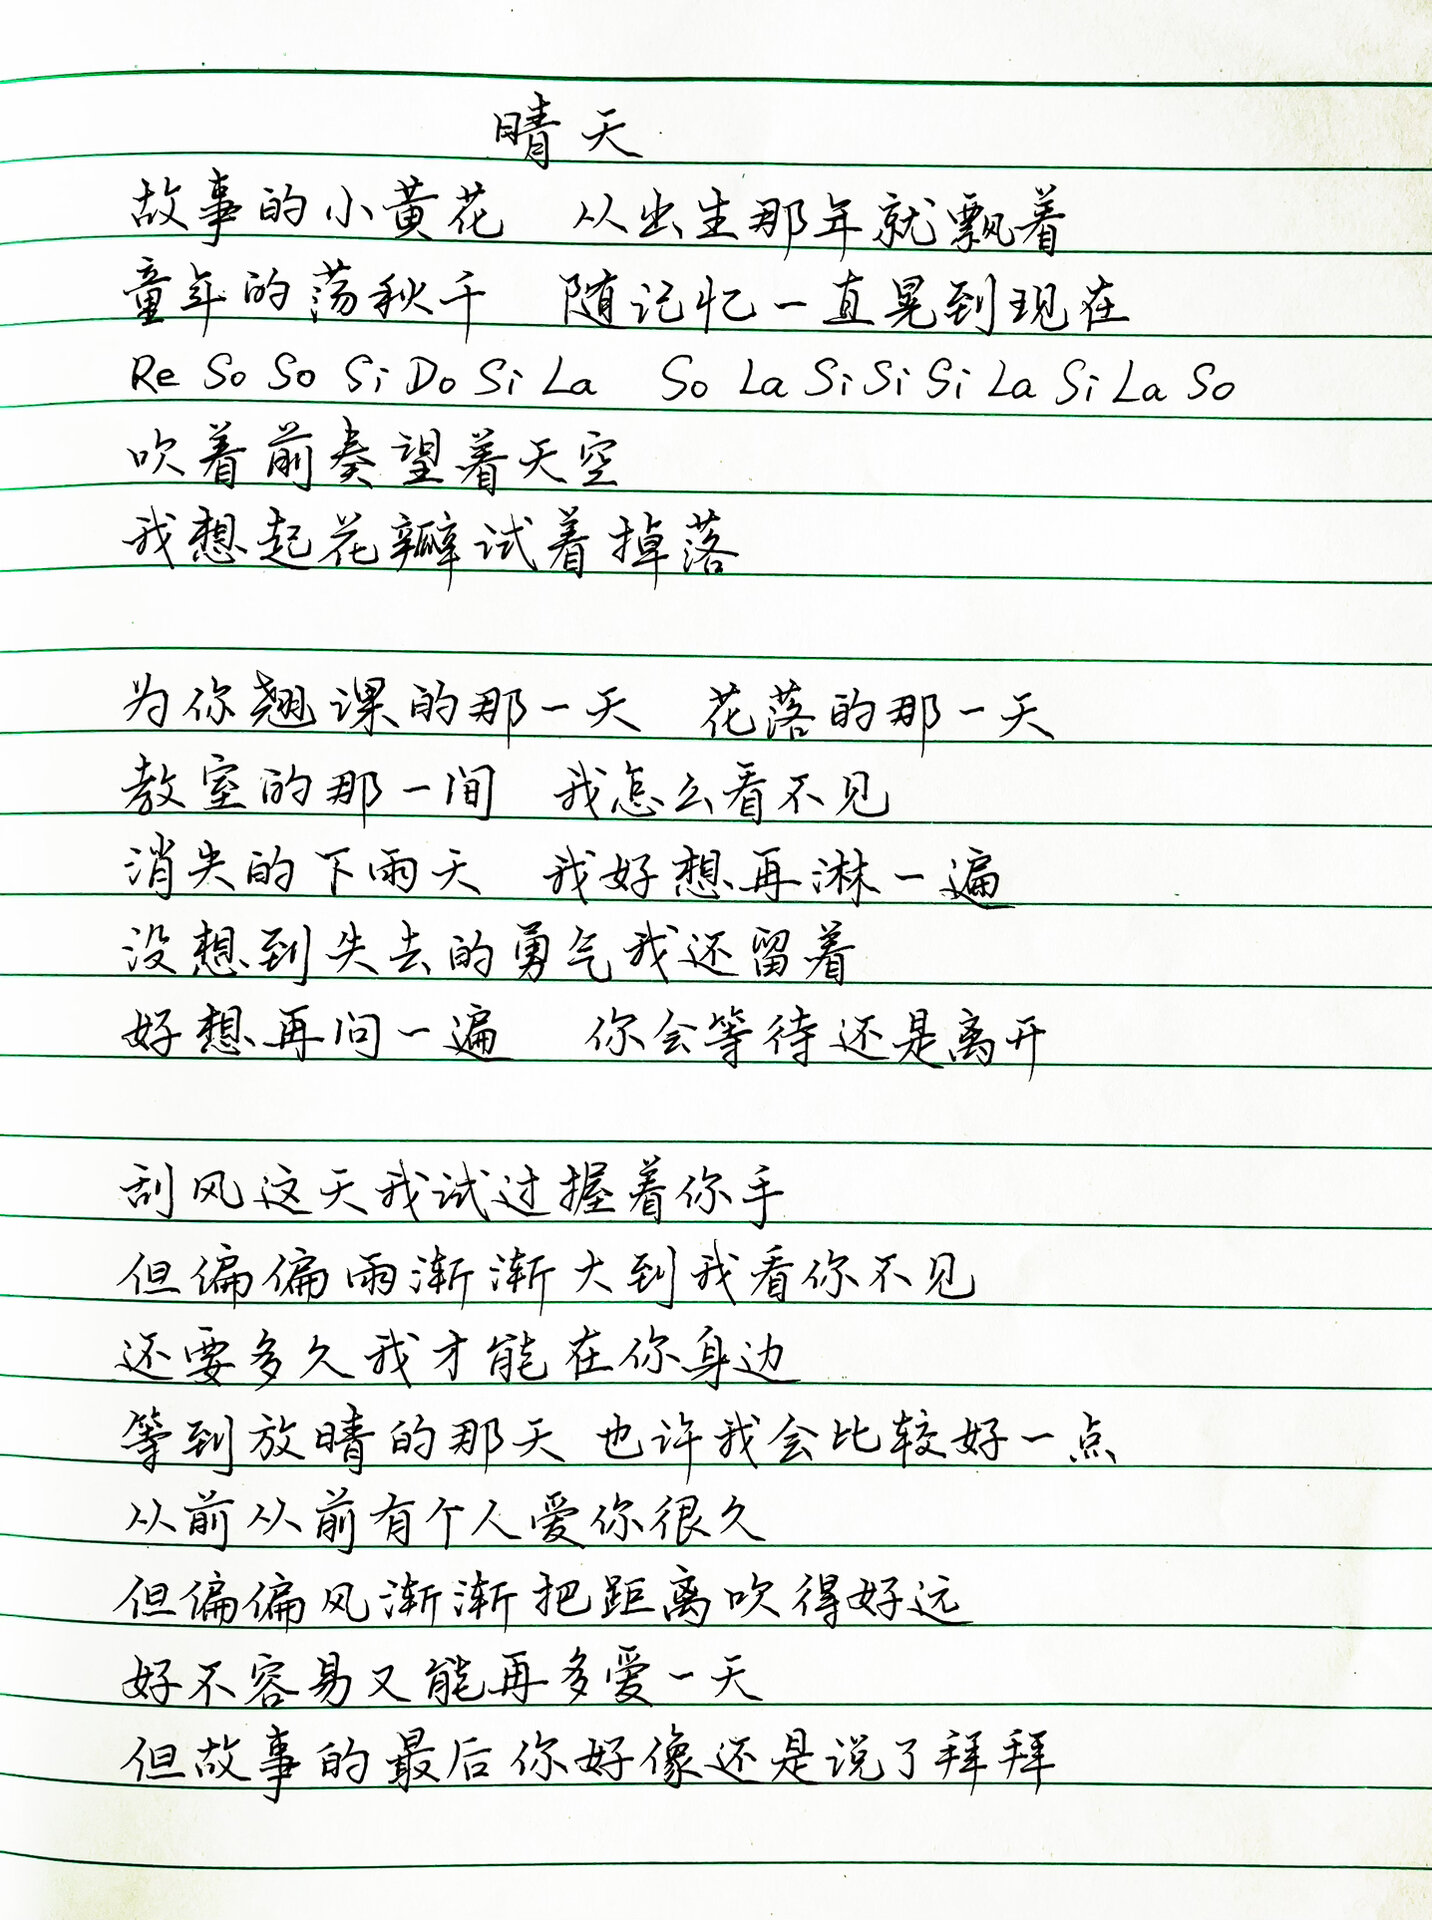 晴天
故事的小黄花 从出生那年就飘着
童年的荡秋千 随记忆一直晃到现在
Re So So Si Do Si La So La Si Si Si La Si La So
吹着前奏望着天空
我想起花瓣试着掉落
为你翘课的那一天 花落的那一天
教室的那一间 我怎么看不见
消失的下雨天 我好想再淋一遍
没想到失去的勇气我还留着
好想再问一遍 你会等待还是离开
刮风这天我试过握着你手
但偏偏雨渐渐大到我看你不见
还要多久我才能在你身边
等到放晴的那天 也许我会比较好一点
从前从前有个人爱你很久
但偏偏风渐渐把距离吹得好远
好不容易又能再多爱一天
但故事的最后你好像还是说了拜拜